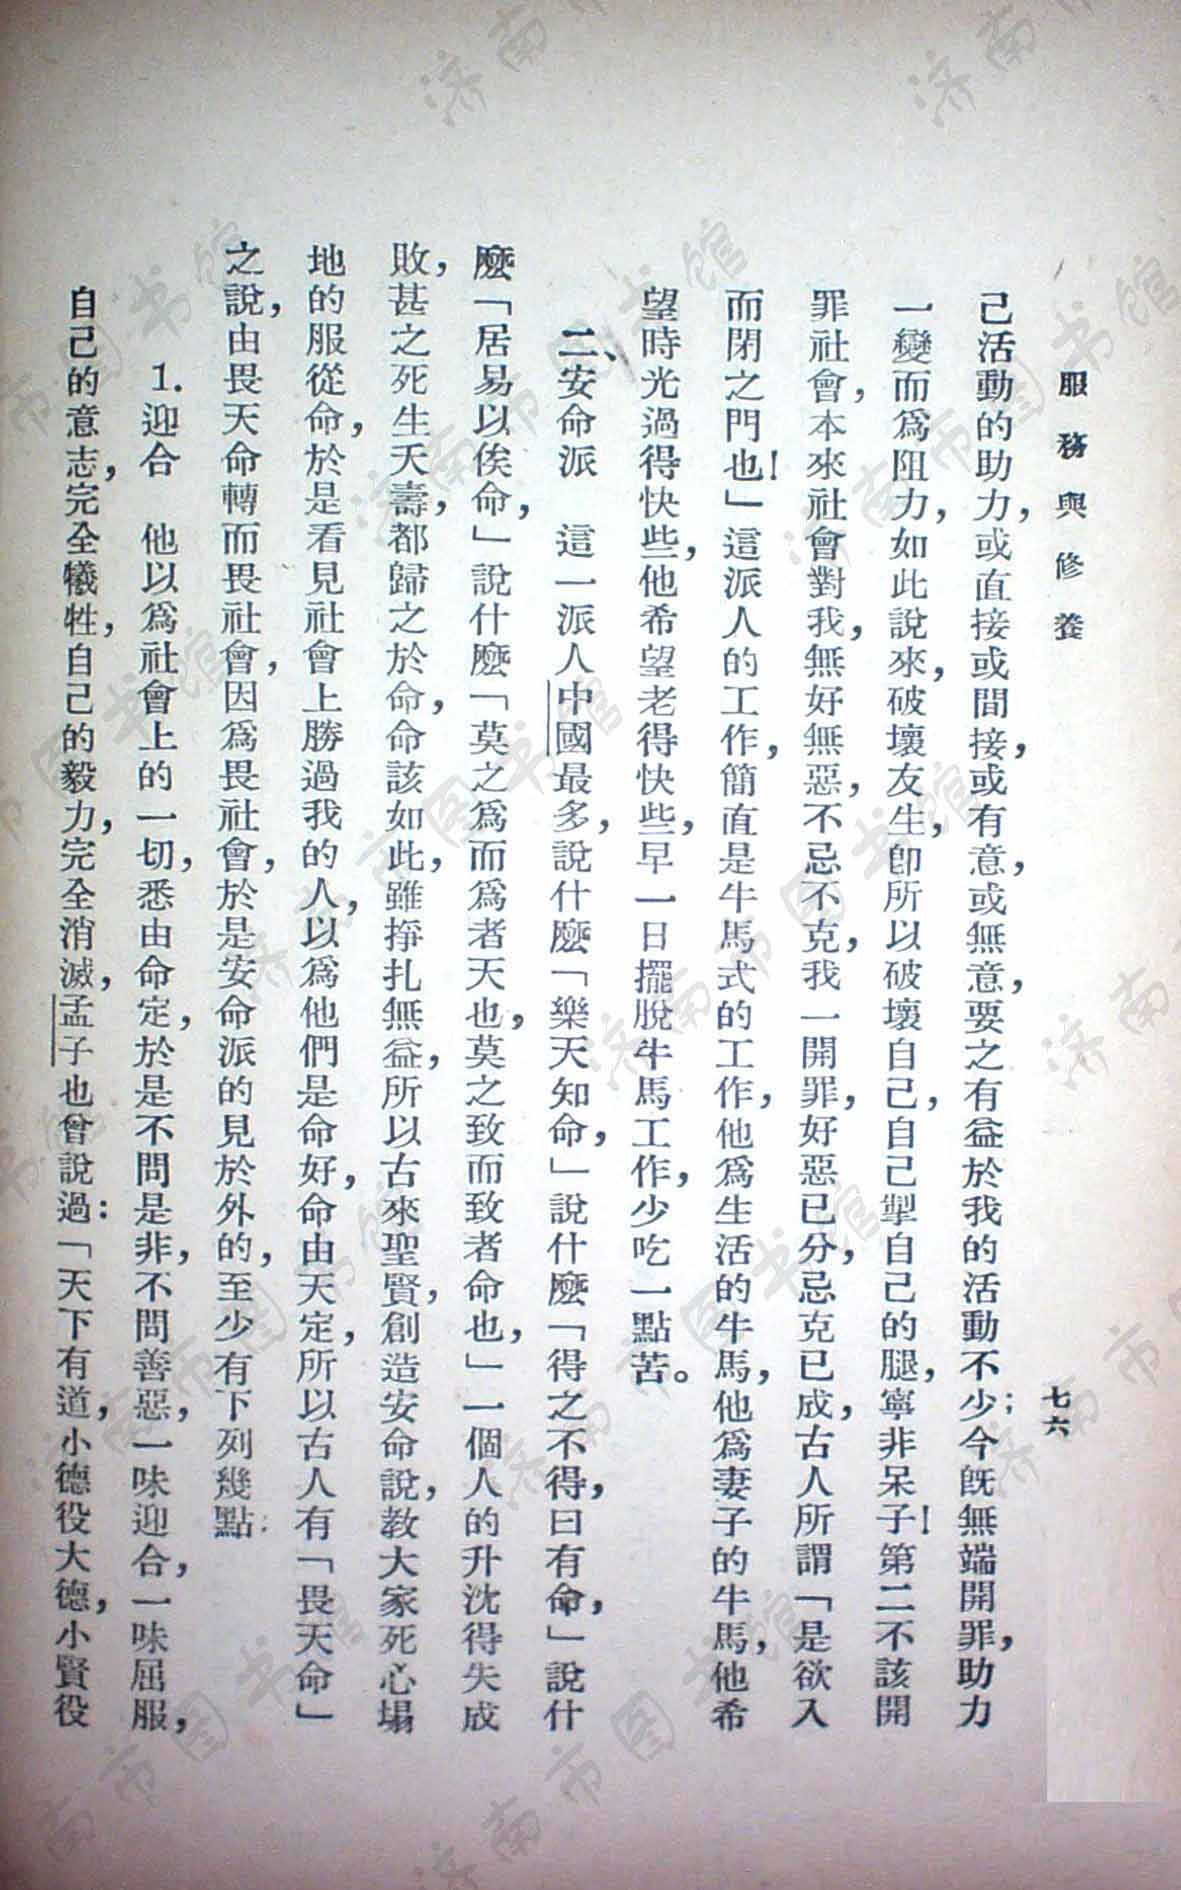 服務與修養
七六
己活動的助力，或直接或間接，或有意，或無意，要之有益於我的活動不少；今旣無端開罪，助力
一變而爲阻力，如此說來，破壞友生，卽所以破壞自己，自己掣自己的腿，寧非呆子！第二不該開
罪社會，本來社會對我，無好無惡，不忌不克，我一開罪，好惡已分，忌克已成，古人所謂「是欲入
而閉之門也！」這派人的工作，簡直是牛馬式的工作，他爲生活的牛馬，他爲妻子的牛馬，他希
望時光過得快些，他希望老得快些，早一日擺脫牛馬工作，少吃一點苦。
二、安命派　這一派人中國最多，說什麼「樂天知命，」說什麼「得之不得，曰有命，」說什
麼「居易以俟命，」說什麼「莫之爲而爲者天也，莫之致而致者命也，」一個人的升沈得失成
敗，甚之死生夭壽，都歸之於命，命該如此，雖掙扎無益，所以古來聖賢，創造安命說，教大家死心塌
地的服從命，於是看見社會上勝過我的人，以爲他們是命好，命由天定，所以古人有「畏天命」
之說，由畏天命轉而畏社會，因爲畏社會，於是安命派的見於外的，至少有下列幾點：
1.迎合　他以爲社會上的一切，悉由命定，於是不問是非，不問善惡，一味迎合，一味屈服，
自己的意志，完全犧牲，自己的毅力，完全消滅，孟子也曾說過：「天下有道，小德役大德，小賢役
济南市图书馆